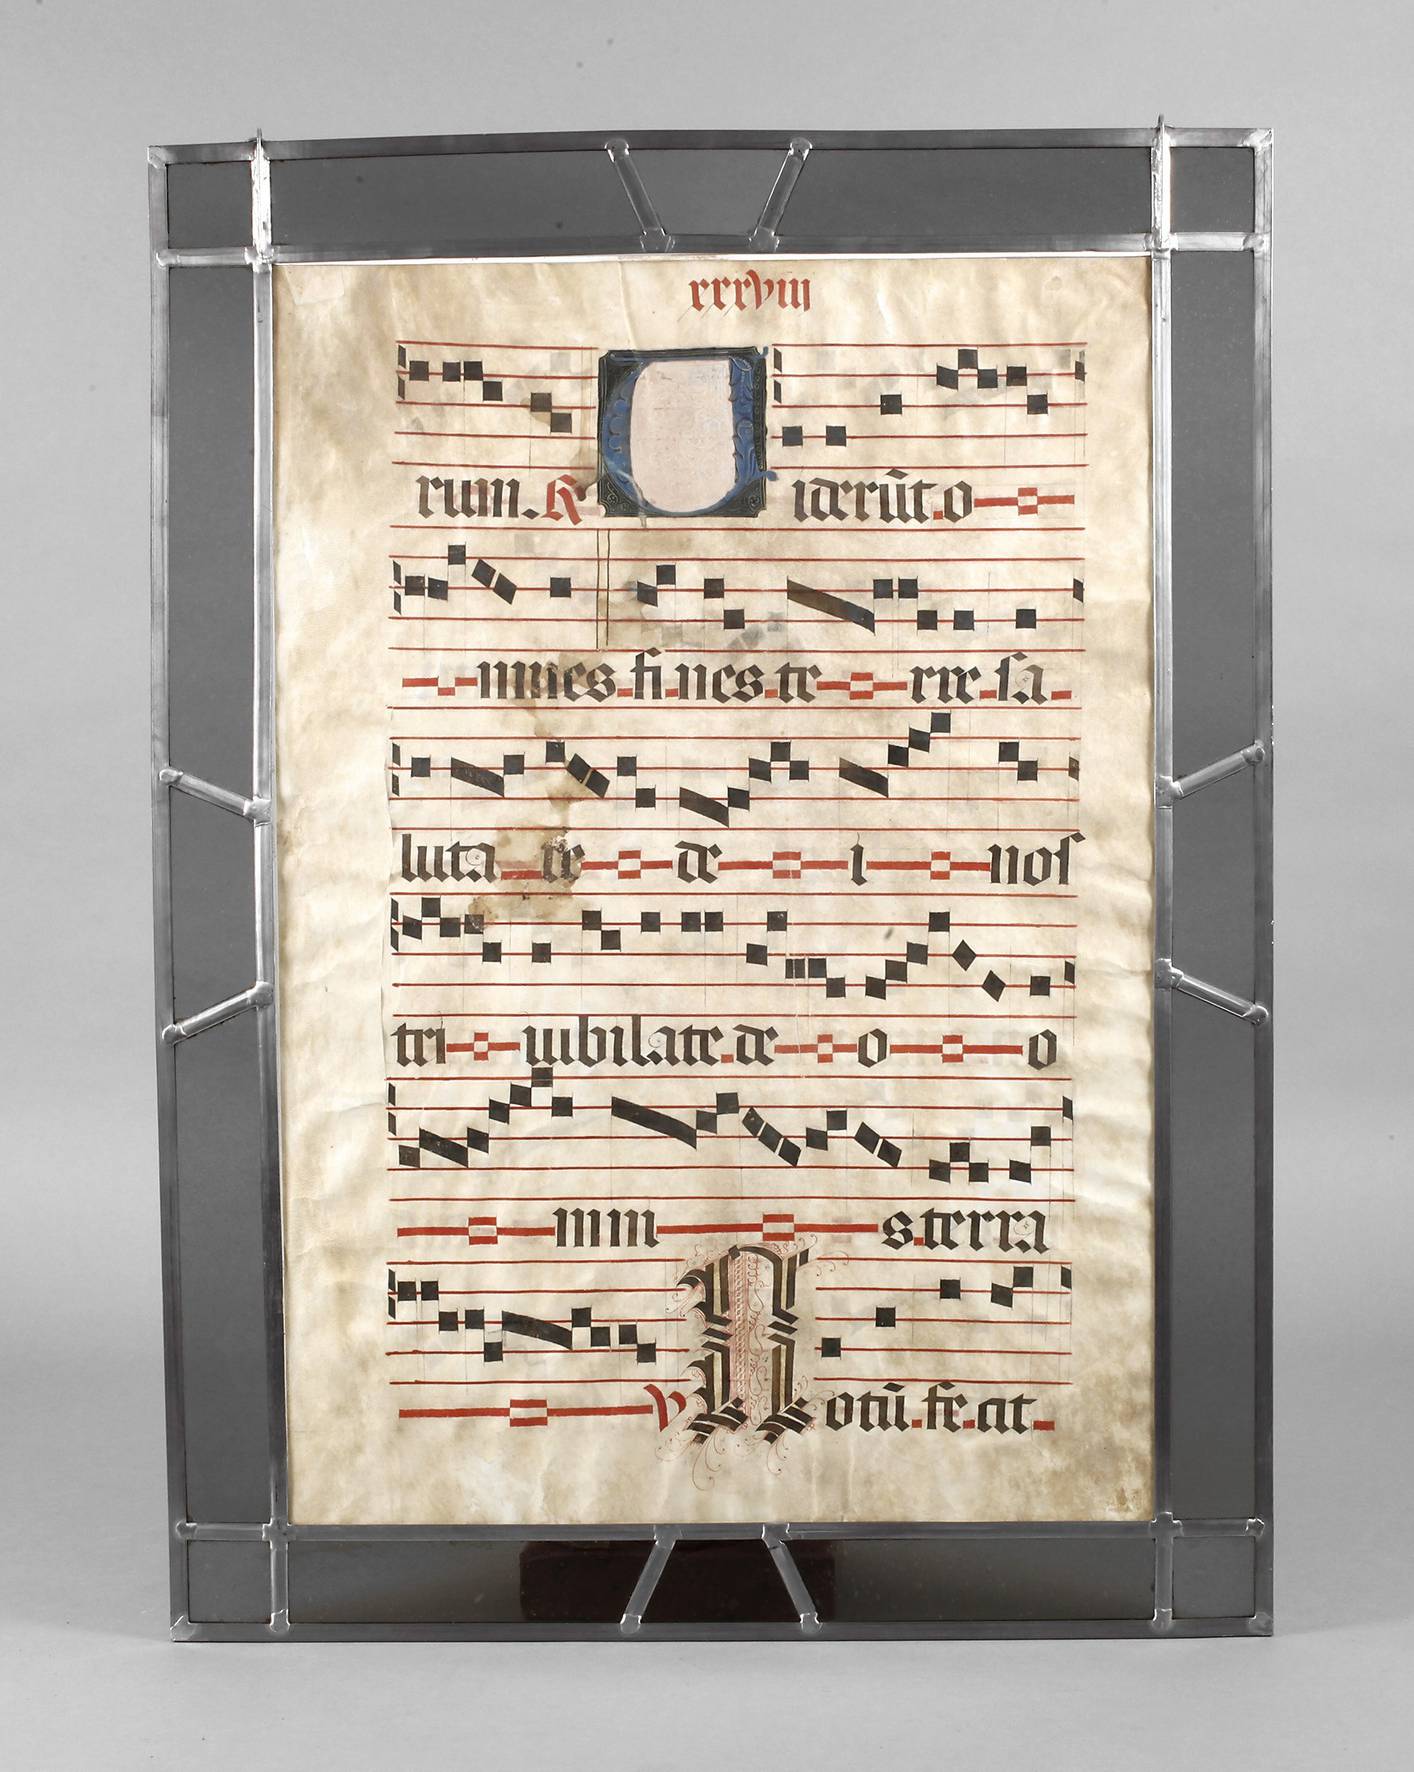 xxxviii
rum. R Viderūt.o
mnes.fi.nes.te rre.sa
luta re de i nos
tri iubilate.de o o
mni s.terra
V Notū.fe.cit